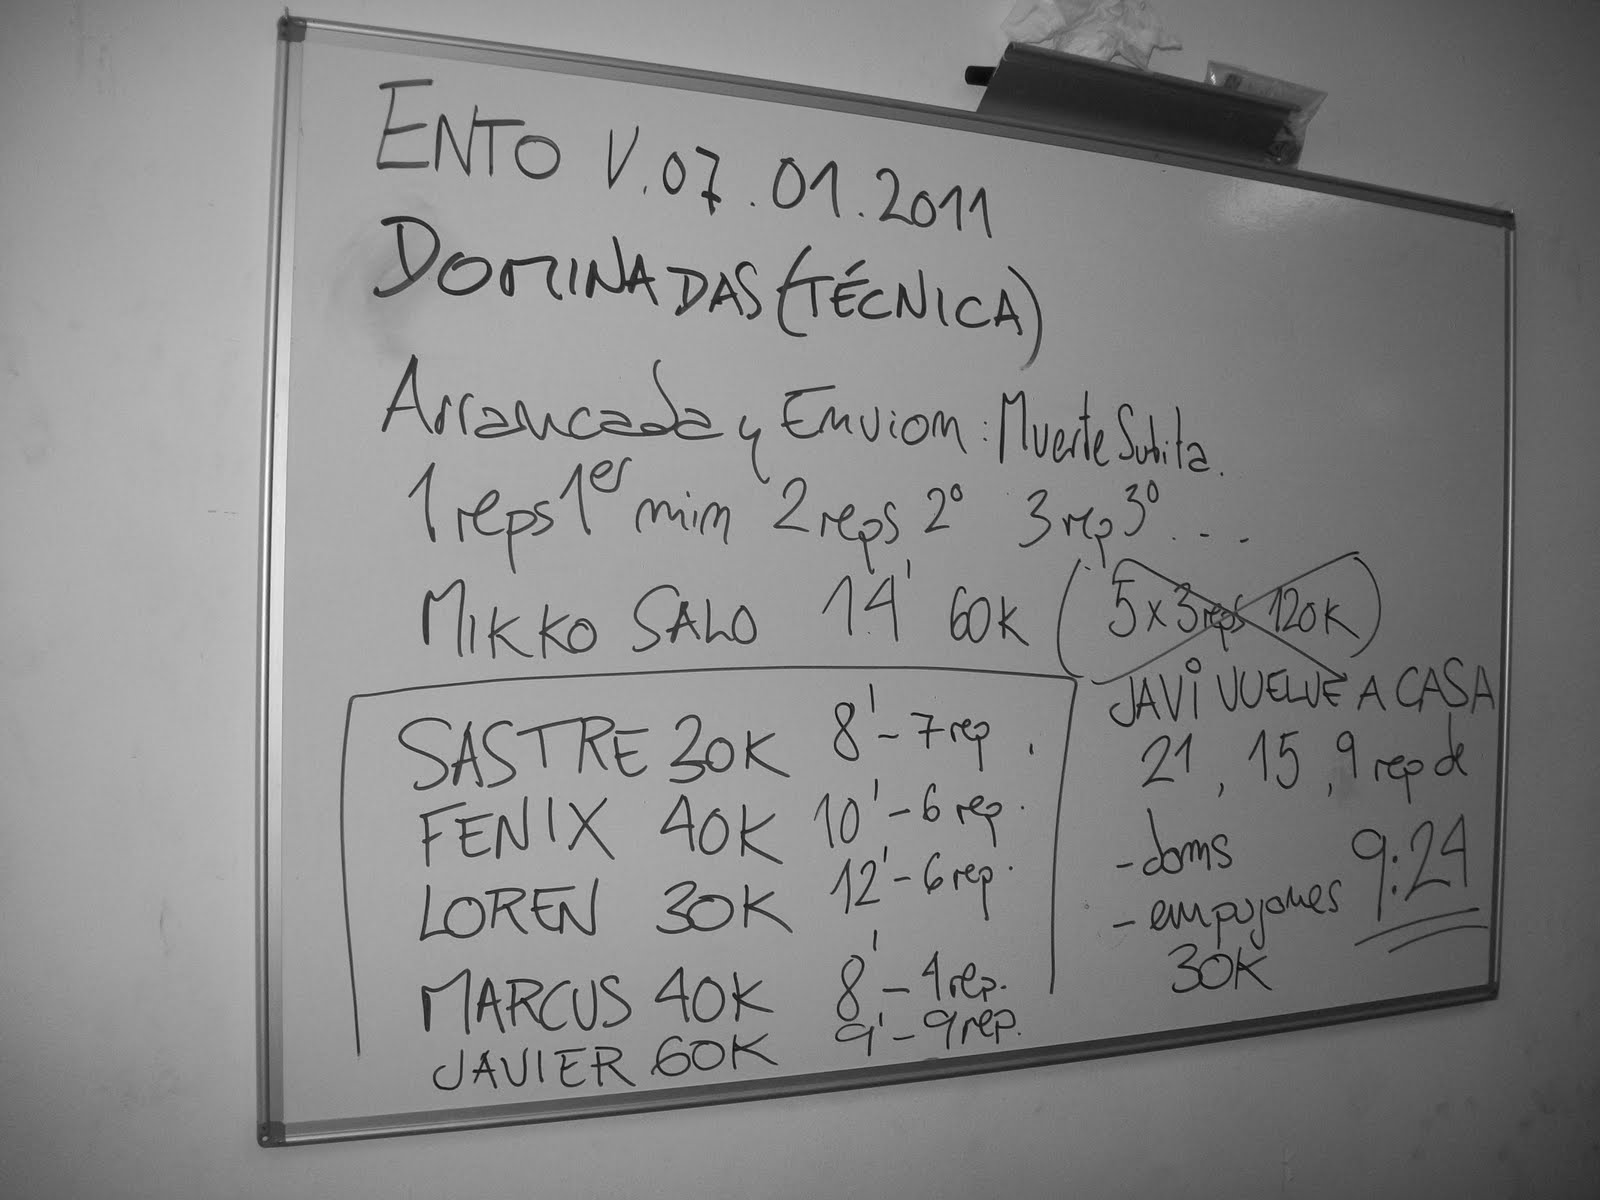 ENTO V.07.01.2011
DOMINADAS (TÉCNICA)
Arrancada y Envion: Muerte Subita.
1 reps 1er min 2 reps 2º 3 rep 3º ...
MIKKO SALO 14' 60K (5 x 3 reps 120K)
SASTRE 30K 8' - 7 rep.
FENIX 40K 10' - 6 rep.
LOREN 30K 12' - 6 rep.
MARCUS 40K 8' - 4 rep.
JAVIER 60K 9' - 9 rep.
JAVI VUELVE A CASA
21, 15, 9 rep de
- doms
- empujones 9:24
30K